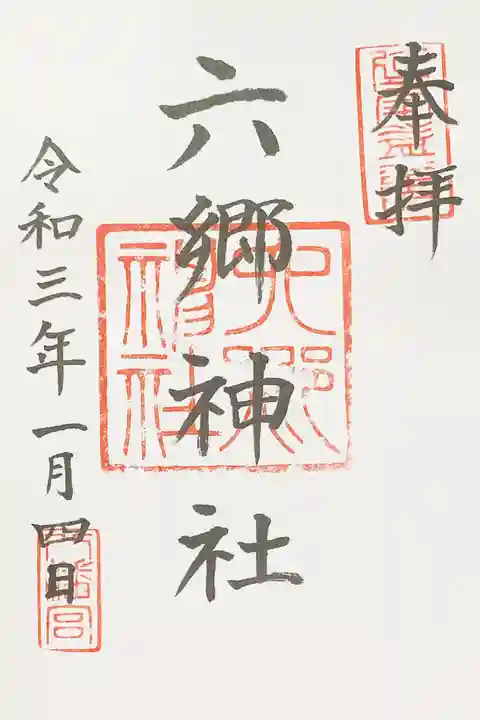 奉拝
六郷神社
令和三年一月四日
六郷神社